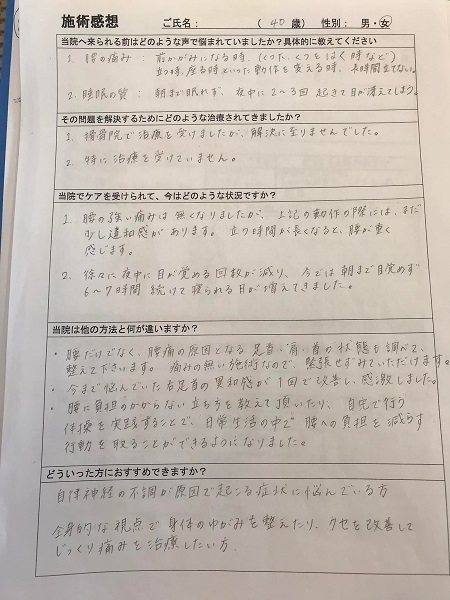 施術感想 ご氏名： （ 40 歳） 性別： 男・女
当院へ来られる前はどのような声で悩まれていましたか？具体的に教えてください
1. 腰の痛み : 前かがみになる時、(くつ下、くつをはく時など)
立つ時、座る時といった動作を変える時、長時間立てない。
2. 睡眠の質 : 朝まで眠れず、夜中に2～3回起きて目が冴えてしまう。
その問題を解決するためにどのような治療されてきましたか？
1. 接骨院で治療を受けましたが、解決に至りませんでした。
2. 特に治療を受けていません。
当院でケアを受けられて、今はどのような状況ですか？
1. 腰の強い痛みは無くなりましたが、上記の動作の際には、まだ
少し違和感があります。立つ時間が長くなると、腰が重く
感じます。
2. 徐々に夜中に目が覚める回数が減り、今では朝まで目覚めず
6～7時間 続けて寝られる日が増えてきました。
当院は他の方法と何が違いますか？
・腰だけでなく、腰痛の原因となる足首・肩・首の状態も調べて、
整えて下さいます。痛みの無い施術なので、緊張せずみていただけます。
・今まで悩んでいた足首の異和感が1回で改善し、感激しました。
・腰に負担のかからない立ち方を教えて頂いたり、自宅で行う
体操を実践することで、日常生活の中で腰への負担を減らす
行動を取ることができるようになりました。
どういった方におすすめできますか？
自律神経の不調が原因で起こる症状に悩んでいる方
全身的な視点で身体のゆがみを整えたり、クセを改善して
じっくり痛みを治療したい方.